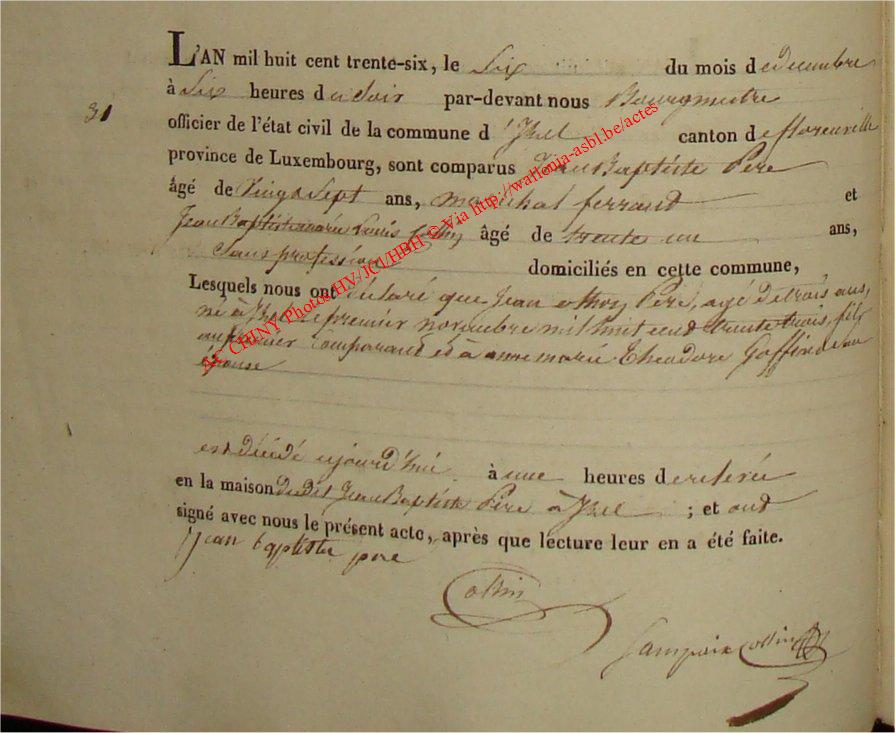 L'AN mil huit cent trente-six, le Six du mois de decembre
31
à Six heures du Soir par-devant nous Bourgmestre
officier de l'état civil de la commune d'Izel canton de florenville
province de Luxembourg, sont comparus Jean Baptiste Pere
âgé de Vingt Sept ans, marechal ferrand et
Jean Baptiste marie Louis Collin âgé de trente un ans,
Sans profession domiciliés en cette commune,
Lesquels nous ont déclaré que Jean Pere, agé de trois ans,
né à Izel le premier novembre mil huit cend trente trois, fils
au premier Comparand et à anne marie Theodore Goffin Son
épouse
est décédé aujourd'hui à une heures de relevée
en la maison dudit Jean Baptiste Pere à Izel ; et ont
signé avec nous le présent acte, après que lecture leur en a été faite.
jean baptiste pere
Collin
Sampoix Collin
CHINY Photos/HV/JCl/HBH © Via http://wallonia-asbl.be/actes